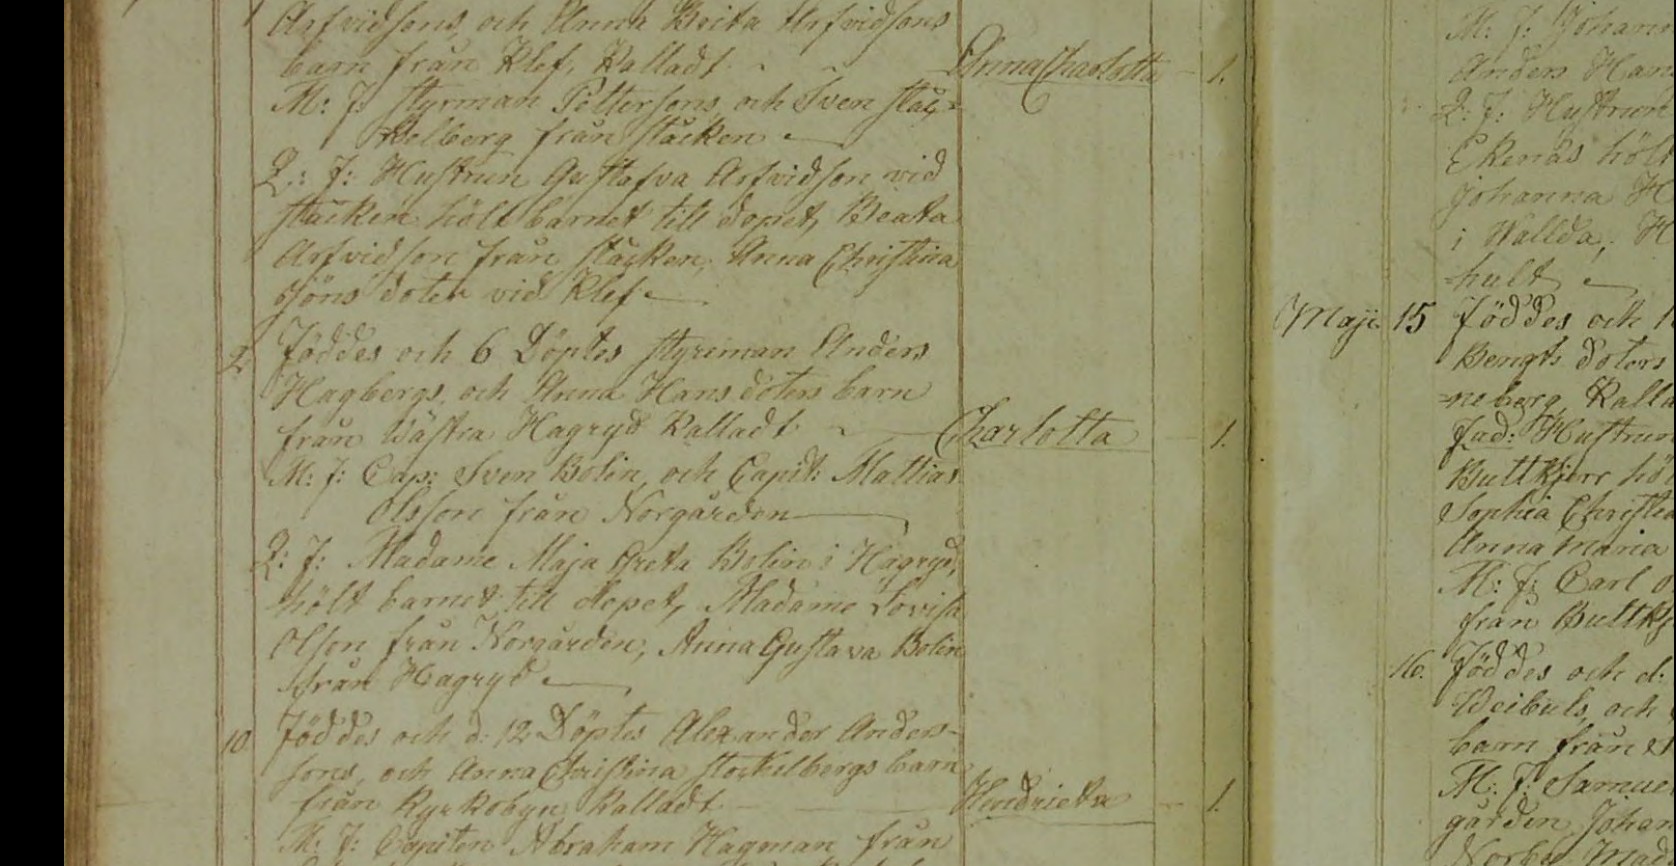 Arfvidsons, och Anna Brita Arfvidsons
barn från Klef, Kalladt Anna Charlotta 1.
M: f: Styrman Pettersons, och Sven Stac=
kelberg från Stacken
Q: f: Hustrun Gustafva Arfvidson vid
Stacken hölt barnet till dopet, Beata
Arfvidson från Stacken, Anna Christina
Jöns doter vid Klef
2 Föddes och 6 Döptes Styrman Anders
Hagbergs, och Anna Hans doters barn
från Wästra Hagryd Kalladt Charlotta 1.
M: f: Cap: Sven Bolin, och Capit: Mattias
Olsson från Norgården
Q: f: Madame Maja Greta Bolin i Hagryd,
hölt barnet till dopet, Madame Lovisa
Olson från Norgården, Anna Gustava Bolin
från Hagryd
10 Föddes och d: 12 Döptes Alexander Anders-
sons, och Anna Christina Stackelbergs barn
från Kyrkobyn Kalladt Hendrieta 1.
M: f: Capiten Abraham Hagman från
M: f: Johann
Anders Han
Q: f: Hustrun
Ekenäs hölt
Johanna H
i Wallda, H
hult
Maji 15 Föddes och 1
Bengts doters
=neberg Kalla
fad: Hustrun
Buttkjerr höl
Sophia Christi
Anna Maria
M: f: Carl O
från Buttkj
16. Föddes och d:
Weibuls, och
barn från S
M: f: Samue
gården Johan